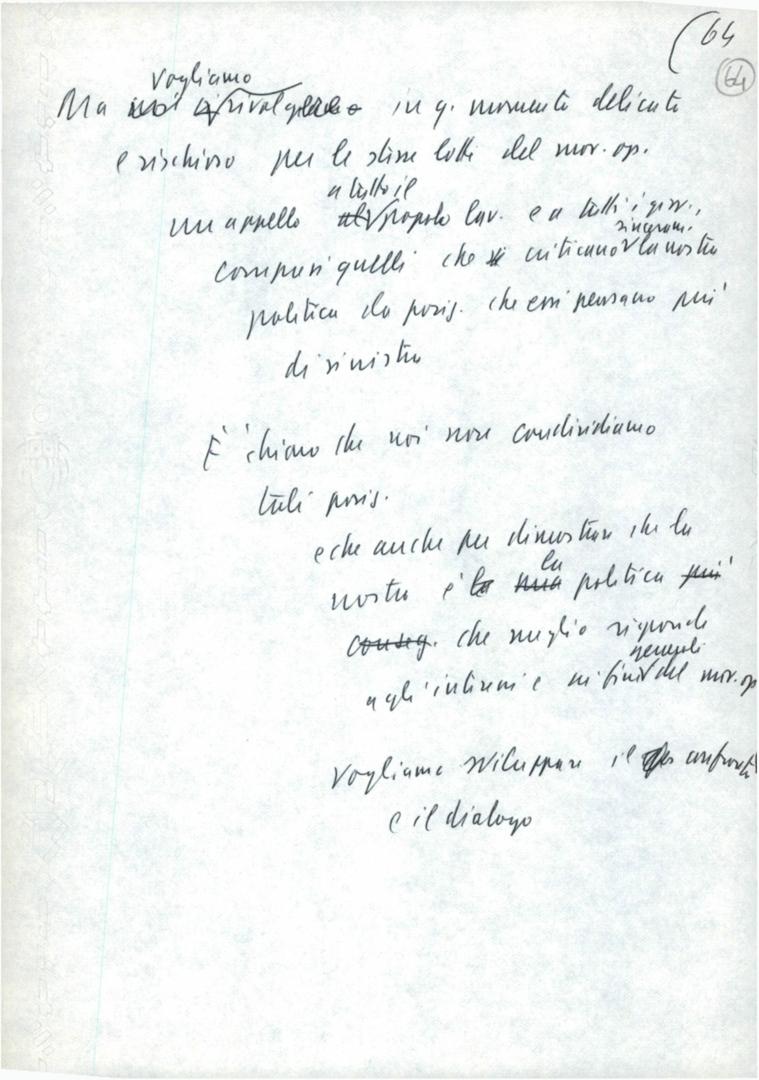 (64
64
Vogliamo
Ma noi rivolgere in q. momento delicato
e rischioso per le stesse lotte del mor. op.
a tutto il
un appello al popolo lav. e a tutti i giov.,
sinceram.
compresi quelli che si criticano la nostra
politica da posiz. che essi pensano più
di sinistra
È chiaro che noi non condividiamo
tali posiz.
e che anche per dimostrare che la
la
nostra è la una politica più
conseg. che meglio risponde
generali
agli interessi e ai fini del mov. op
Vogliamo sviluppare il confronto
e il dialogo